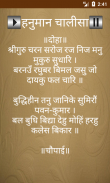 हनुमान चालीसा
॥दोहा॥
श्रीगुरु चरन सरोज रज निज मनु
मुकुरु सुधारि ।
बरनउँ रघुबर बिमल जसु जो
दायकु फल चारि ॥
बुद्धिहीन तनु जानिके सुमिरौं
पवन-कुमार ।
बल बुधि बिद्या देहु मोहिं हरहु
कलेस बिकार ॥
॥चौपाई॥